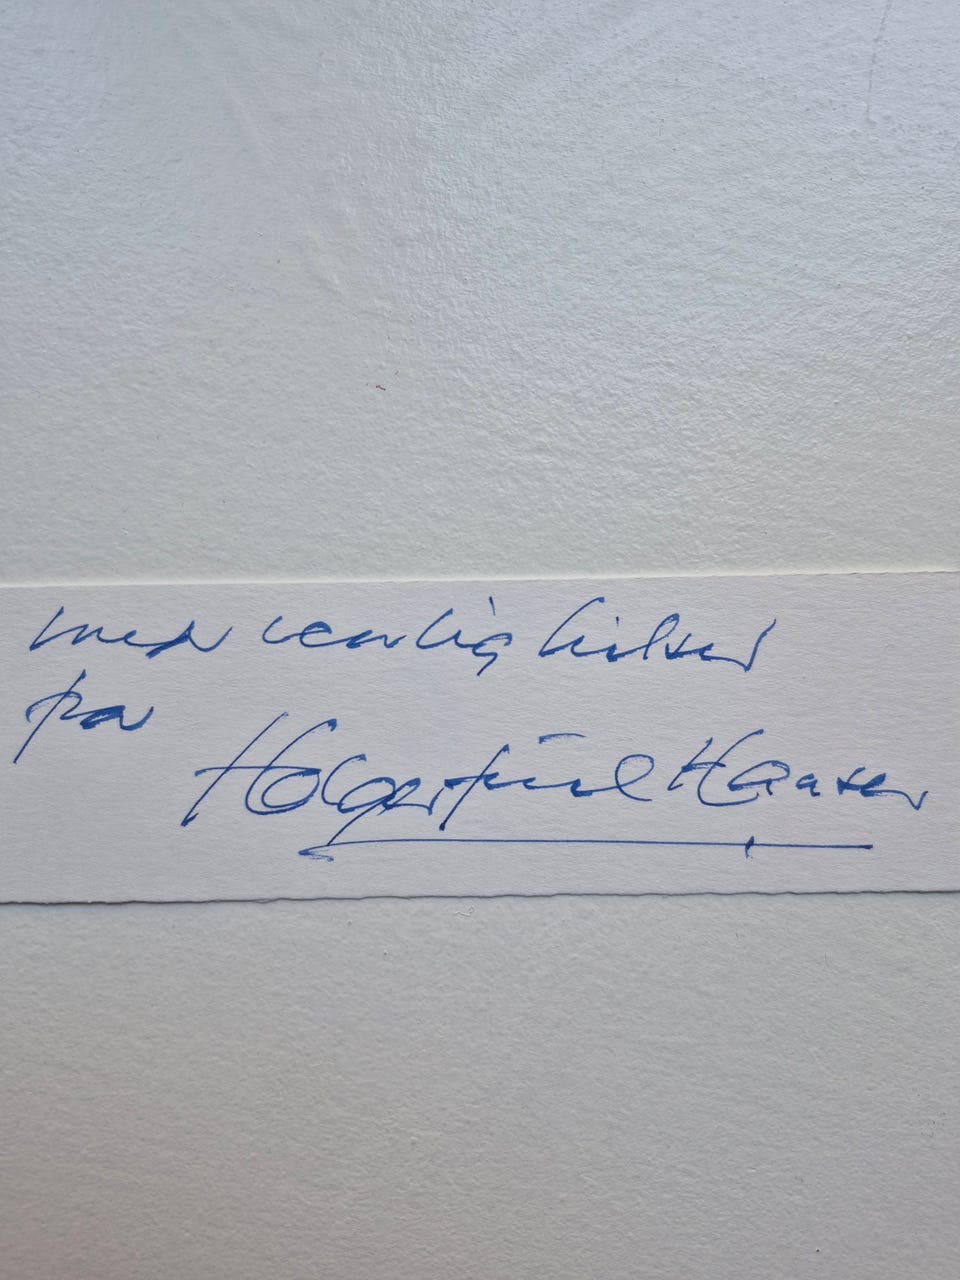 med venlig hilsen
fra
Holger Juul Hansen